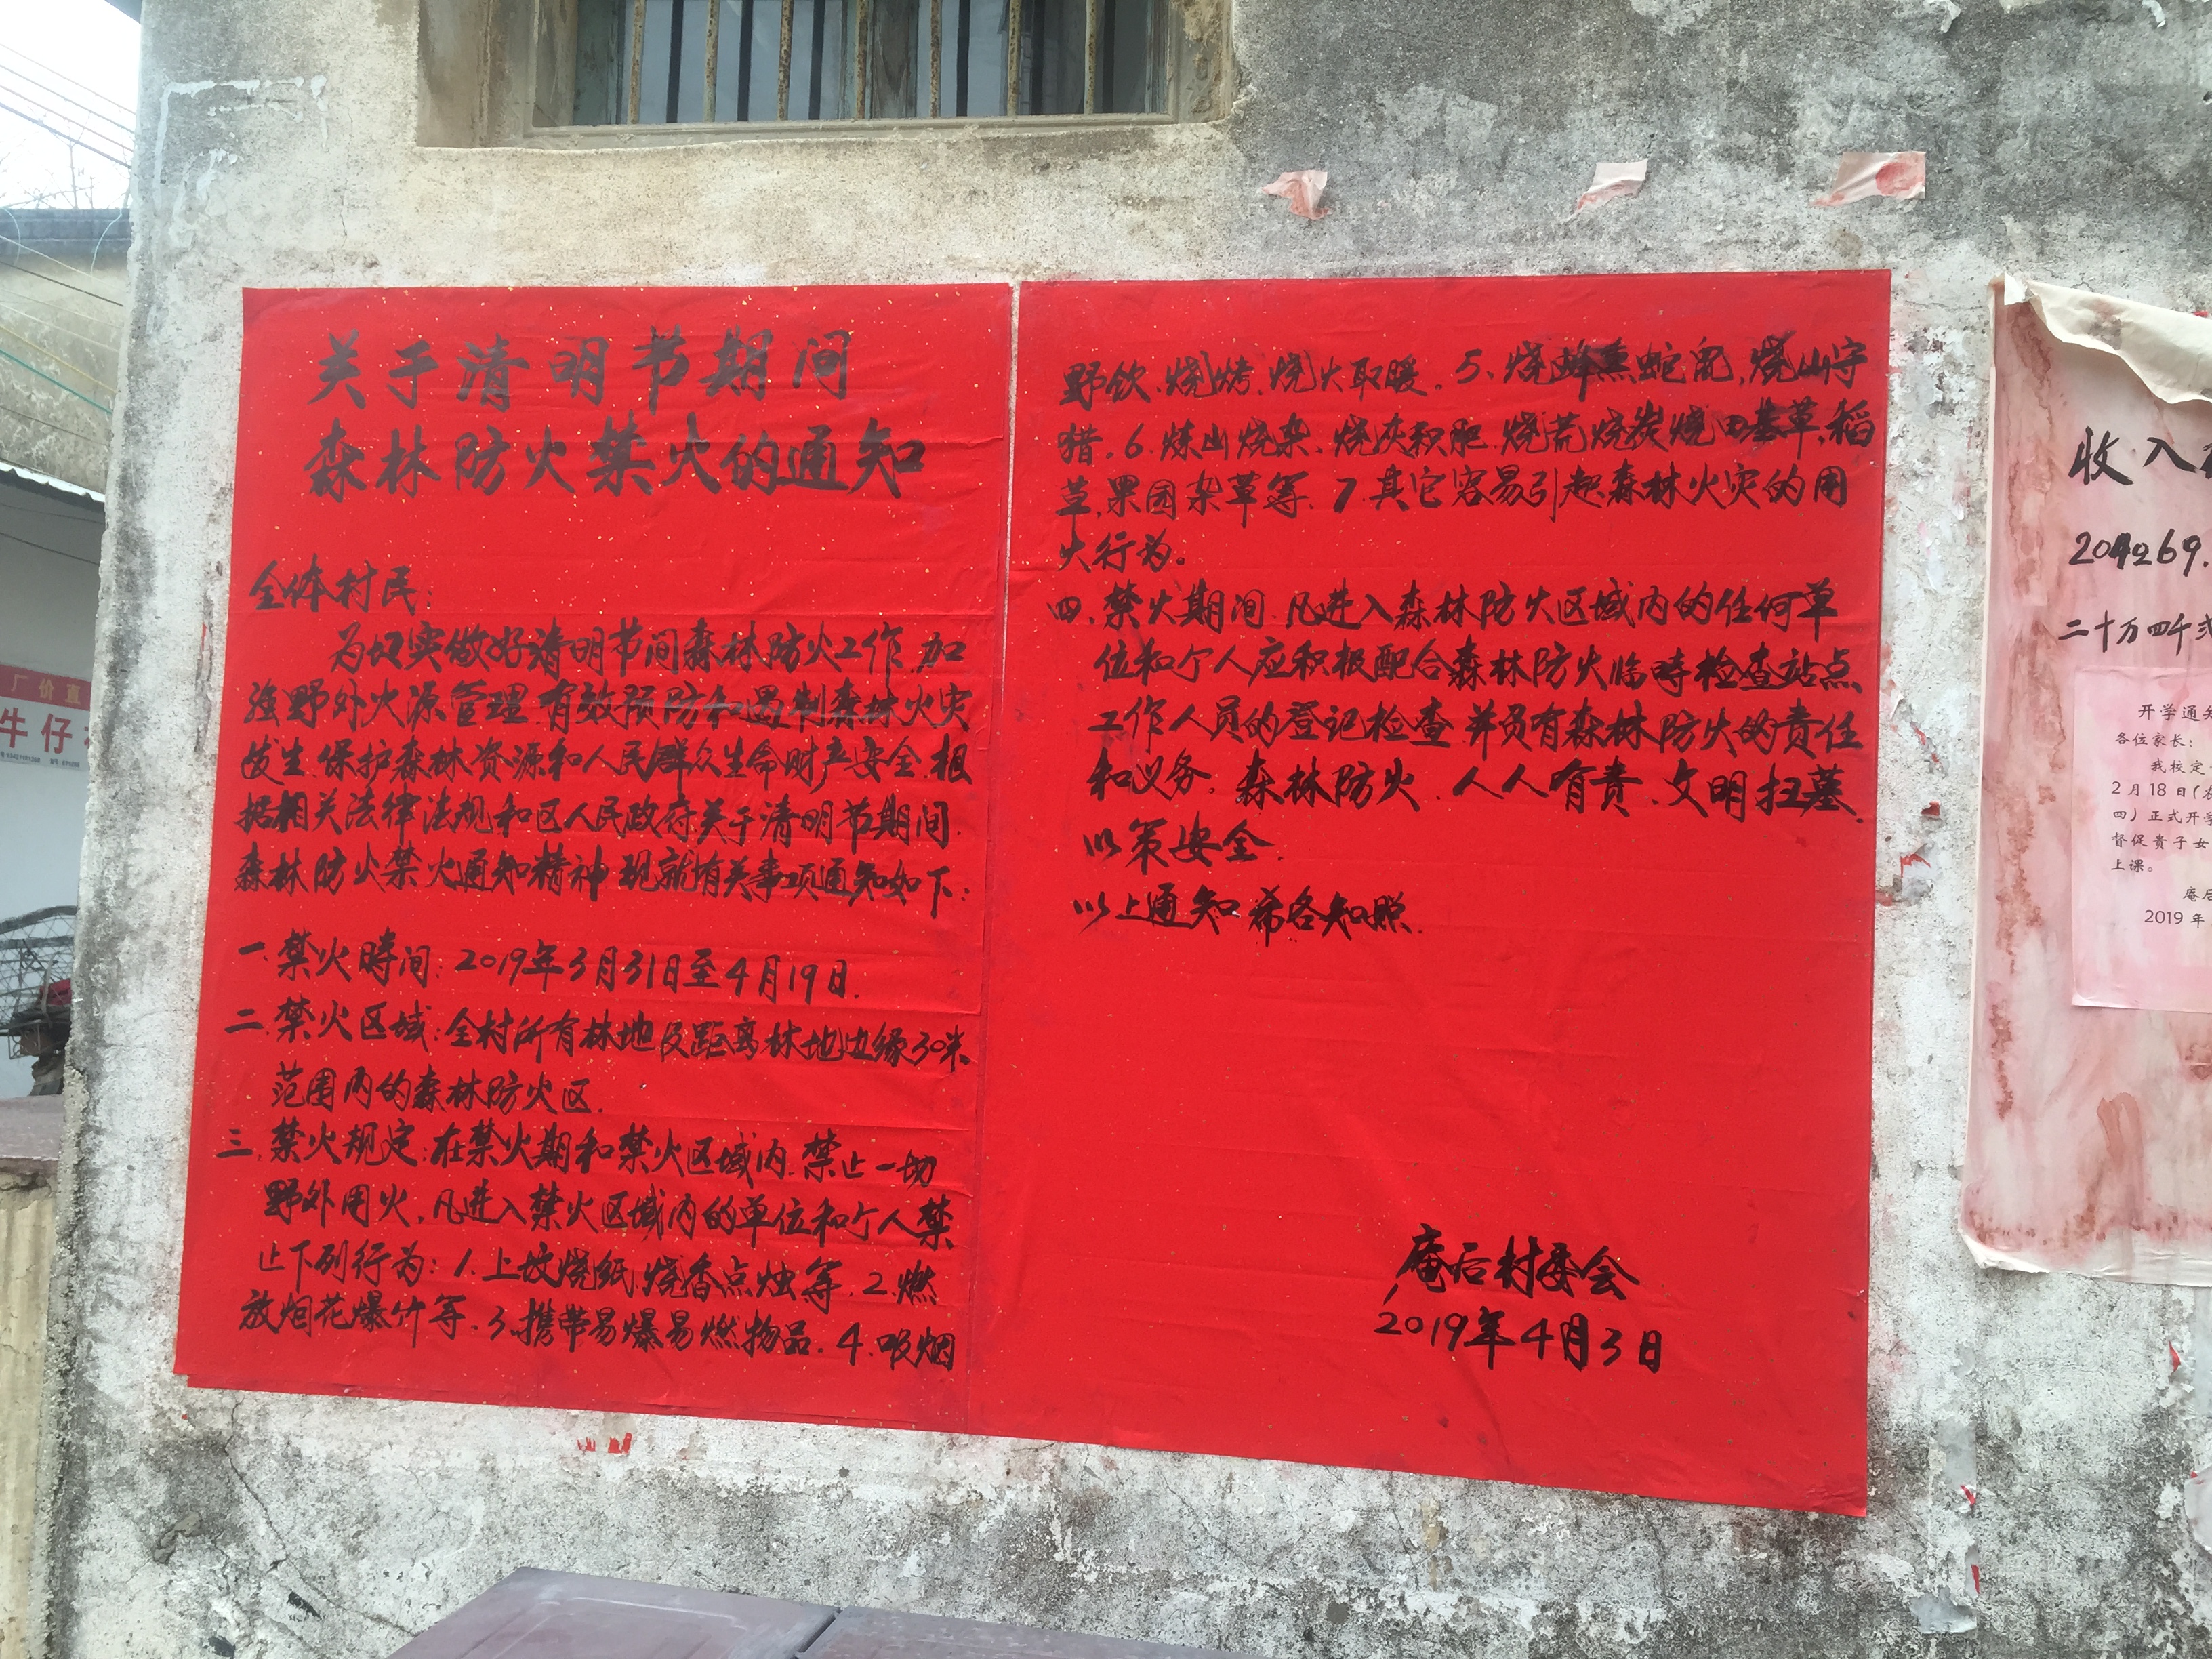 关于清明节期间
森林防火禁火的通知
全体村民：
为切实做好清明节间森林防火工作，加
强野外火源管理，有效预防和遏制森林火灾
发生，保护森林资源和人民群众生命财产安全，根
据相关法律法规和区人民政府关于清明节期间
森林防火禁火通知精神，现就有关事项通知如下：
一、禁火時间：2019年3月31日至4月19日。
二、禁火区域：全村所有林地及距离林地边缘30米
范围内的森林防火区。
三、禁火规定：在禁火期和禁火区域内，禁止一切
野外用火，凡进入禁火区域内的单位和个人禁
止下列行为：1、上坟烧纸，烧香点烛等。2、燃
放烟花爆竹等。3、携带易爆易燃物品。4、吸烟
野饮、烧烤、烧火取暖。5、烧蜂熏蛇鼠，烧山守
猎。6、炼山烧杂、烧灰积肥、烧荒烧炭烧田基草、稻
草、果园杂草等。7、其它容易引起森林火灾的用
火行为。
四、禁火期间，凡进入森林防火区域内的任何单
位和个人应积极配合森林防火临時检查站点
工作人员的登记检查，并员有森林防火的责任
和义务。森林防火，人人有责，文明扫墓，
以策安全。
以上通知，希各知照。
庵后村委会
2019年4月3日
收入
204269.
二十万四千弍
开学通知
各位家长：
我校定
2月18日(农
四）正式开学
督促貴子女
上课。
庵后
2019年
厂价直
牛仔